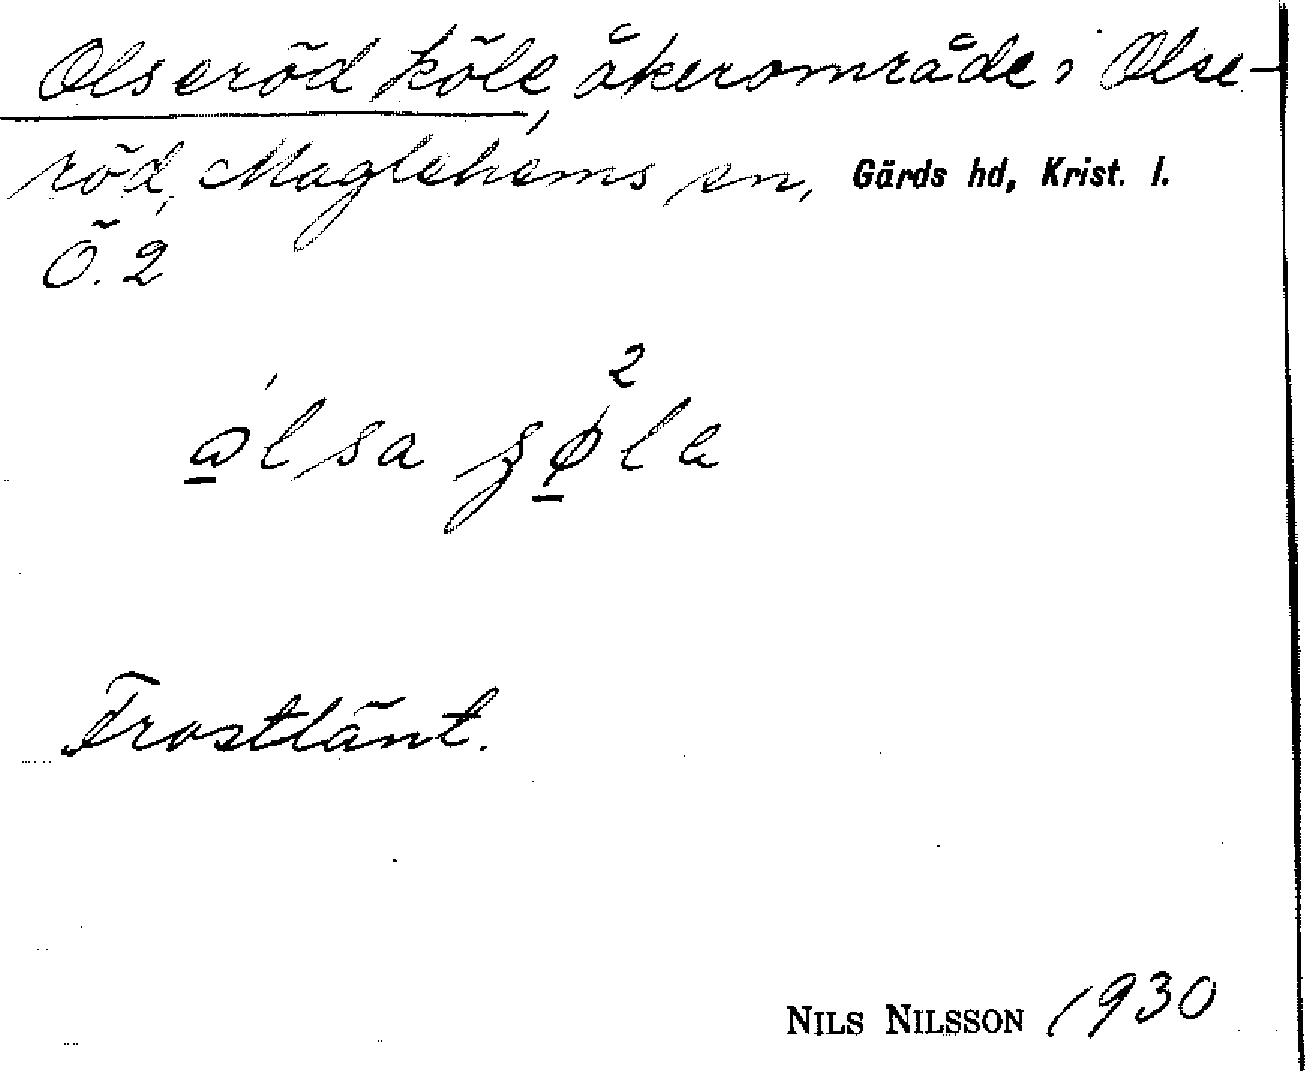 Olseröd köle, åkerområde i Olse-
röd, Maglehems sn, Gärds hd, Krist. l.
Ö. 2
2
ålsa ʂøla
Frostlänt.
NILS NILSSON 1930